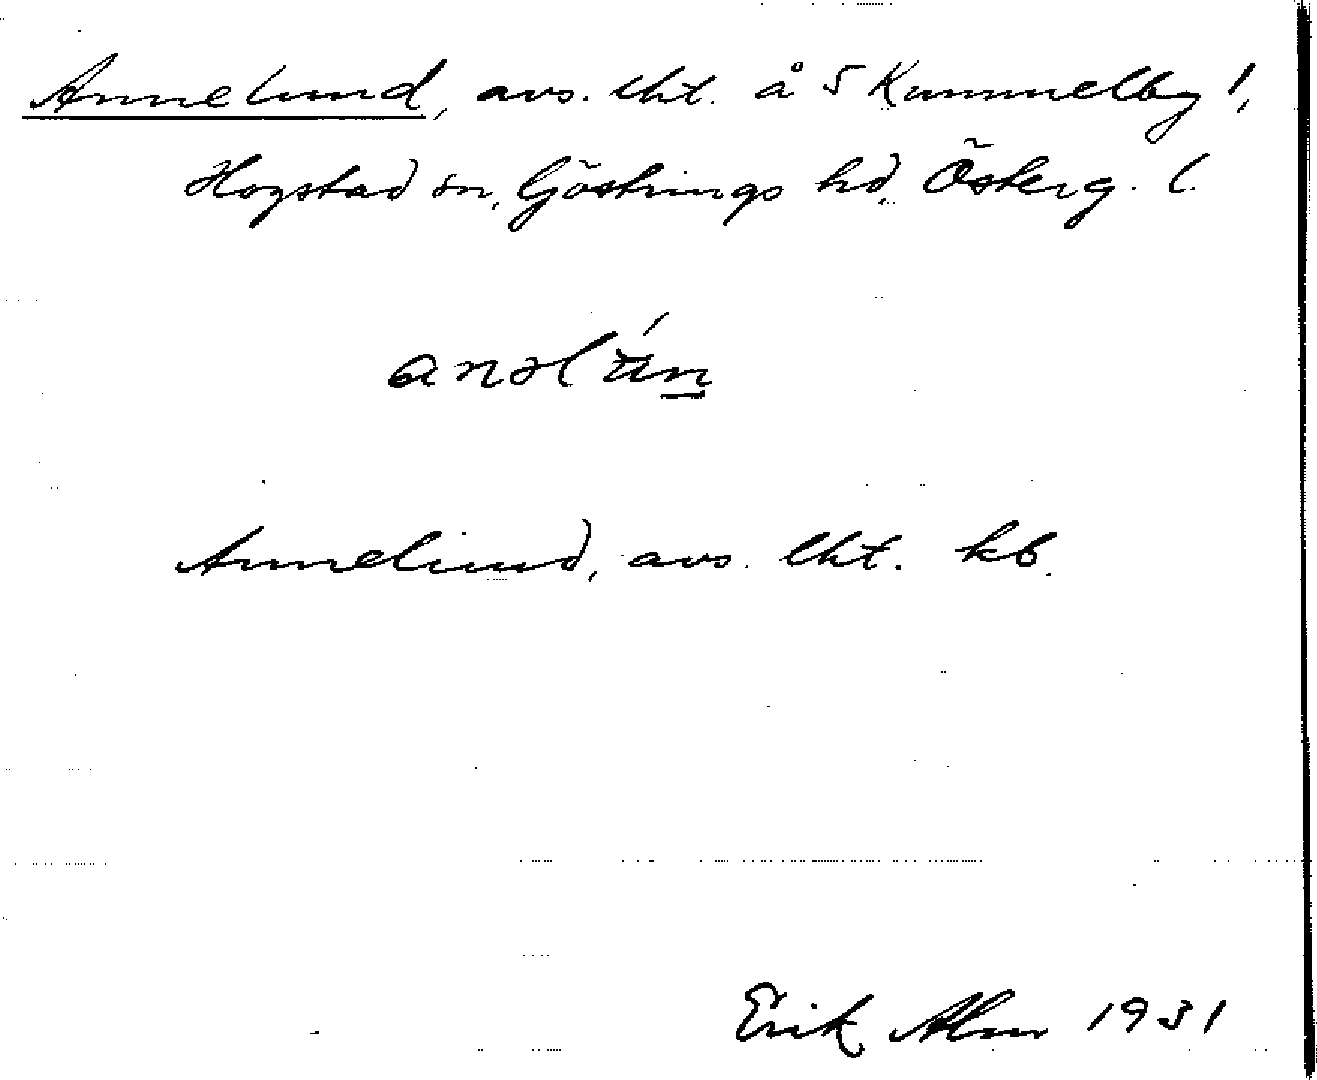 Annelund, avs. lht. å S Kummelby 1,
Hogstad sn, Göstrings hd, Österg. l.
Annelund, avs. lht. kb.
Erik Alm 1931